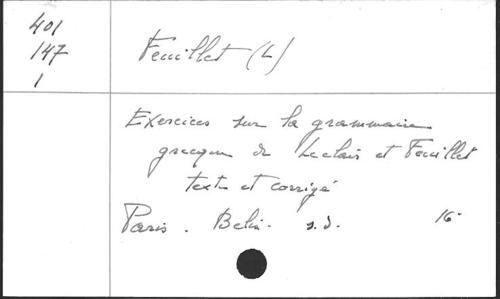 401
147
1
Feuillet (L)
Exercices sur la grammaire
grecque de Leclair et Feuillet
texte et corrigé
Paris. Belin. s.d. 16°